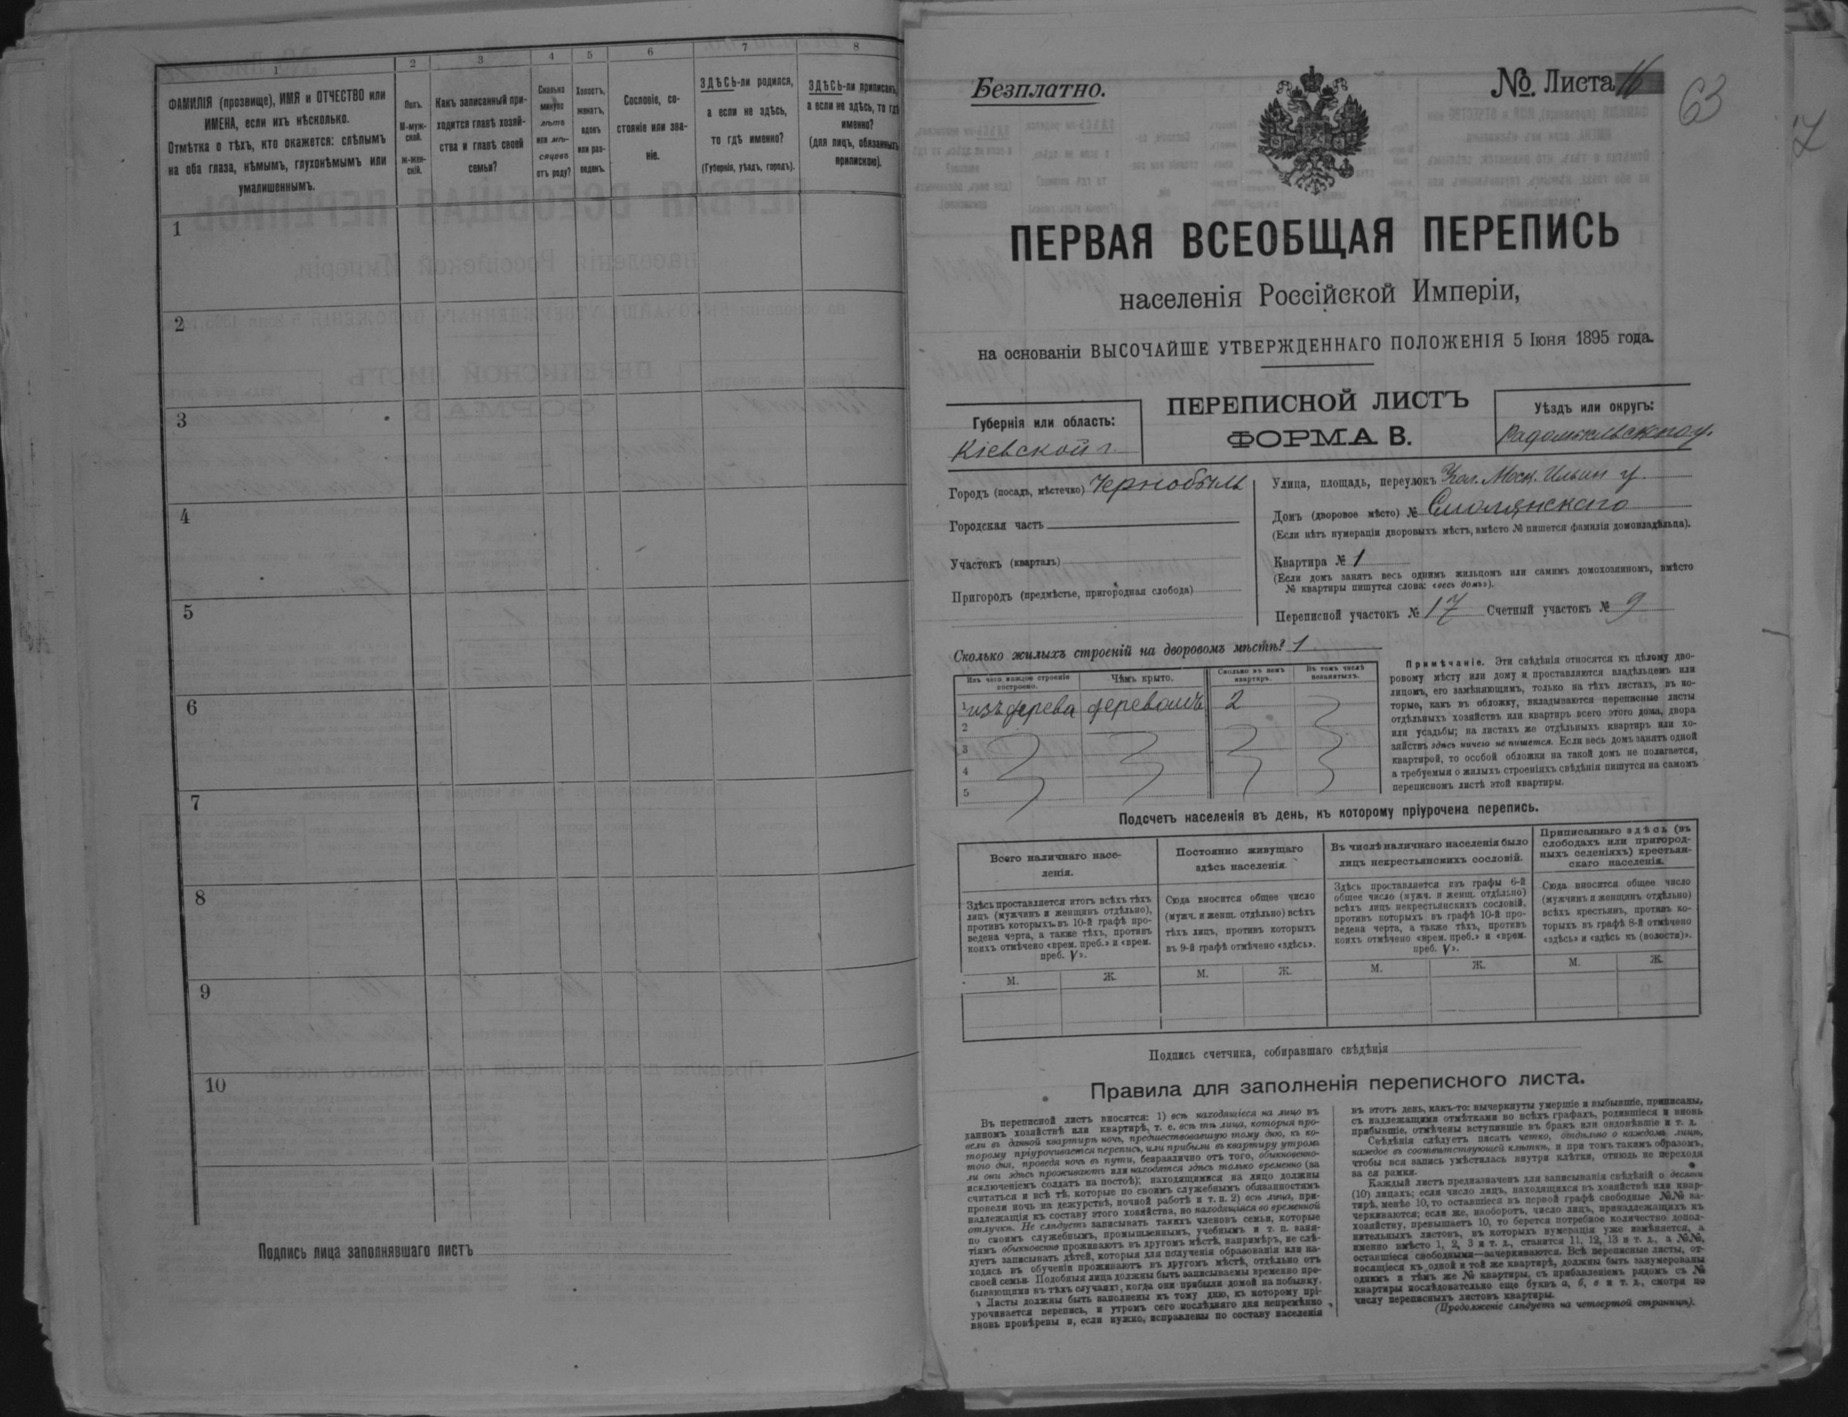 1
2
3
4
5
6
7
8
ФАМИЛІЯ (прозвище), ИМЯ и ОТЧЕСТВО или
ИМЕНА, если ихъ нѣсколько.
Отмѣтка о тѣхъ, кто окажется: слѣпымъ
на оба глаза, нѣмымъ, глухонѣмымъ или
умалишеннымъ.
Полъ.
М-муж-
ской.
Ж-жен-
скій.
Какъ записанный при-
ходится главѣ хозяй-
ства и главѣ своей
семьи?
Сколько
минуло
лѣтъ
или мѣ-
сяцевъ
отъ роду?
Холостъ,
женатъ,
вдовъ
или раз-
веденъ.
Сословіе, со-
стояніе или зва-
ніе.
ЗДѢСЬ-ли родился,
а если не здѣсь,
то гдѣ именно?
(Губернія, уѣздъ, городъ).
ЗДѢСЬ-ли приписанъ,
а если не здѣсь, то гдѣ
именно?
(для лицъ, обязанныхъ
припискою).
1
2
3
4
5
6
7
8
9
10
Подпись лица заполнявшаго листъ
Безплатно.
№ Листа 16
63
ПЕРВАЯ ВСЕОБЩАЯ ПЕРЕПИСЬ
населенія Россійской Имперіи,
на основаніи ВЫСОЧАЙШЕ УТВЕРЖДЕННАГО ПОЛОЖЕНІЯ 5 Іюня 1895 года.
Губернія или область:
Кіевской г.
ПЕРЕПИСНОЙ ЛИСТЪ
ФОРМА В.
Уѣздъ или округъ:
Радомысльскаго у.
Городъ (посадъ, мѣстечко) Чернобыль
Городская часть
Участокъ (кварталъ)
Пригородъ (предмѣстье, пригородная слобода)
Улица, площадь, переулокъ
Домъ (дворовое мѣсто) № Смолянскаго
(Если нѣтъ нумераціи дворовыхъ мѣстъ, вмѣсто № пишется фамилія домовладѣльца).
Квартира № 1
(Если домъ занятъ весь однимъ жильцомъ или самимъ домохозяиномъ, вмѣсто
№ квартиры пишутся слова: «весь домъ»).
Переписной участокъ № 17 Счетный участокъ № 9
Сколько жилыхъ строеній на дворовомъ мѣстѣ? 1
Изъ чего каждое строеніе
построено.
Чѣмъ крыто.
Сколько въ немъ
квартиръ.
Въ томъ числѣ
незанятыхъ.
1 изъ дерева деревомъ 2
2
3
4
5
Примѣчаніе. Эти свѣдѣнія относятся къ цѣлому дво-
ровому мѣсту или дому и проставляются владѣльцемъ или
лицомъ, его замѣняющимъ, только на тѣхъ листахъ, въ ко-
торые, какъ въ обложку, вкладываются переписные листы
отдѣльныхъ хозяйствъ или квартиръ всего этого дома, двора
или усадьбы; на листахъ же отдѣльныхъ квартиръ или хо-
зяйствъ здѣсь ничего не пишется. Если весь домъ занятъ одной
квартирой, то особой обложки на такой домъ не полагается,
а требуемыя о жилыхъ строеніяхъ свѣдѣнія пишутся на самомъ
переписномъ листѣ этой квартиры.
Подсчетъ населенія въ день, къ которому пріурочена перепись.
Всего наличнаго насе-
ленія.
Здѣсь проставляется итогъ всѣхъ тѣхъ
лицъ (мужчинъ и женщинъ отдѣльно),
противъ которыхъ въ 10-й графѣ про-
ведена черта, а также тѣхъ, противъ
коихъ отмѣчено «врем. преб.» и «врем.
преб. V».
Постоянно живущаго
здѣсь населенія.
Сюда вносится общее число
(мужч. и женщ. отдѣльно) всѣхъ
тѣхъ лицъ, противъ которыхъ
въ 9-й графѣ отмѣчено «здѣсь».
Въ числѣ наличнаго населенія было
лицъ некрестьянскихъ сословій.
Здѣсь проставляется изъ графы 6-й
общее число (мужч. и женщ. отдѣльно)
всѣхъ лицъ некрестьянскихъ сословій,
противъ которыхъ въ графѣ 10-й про-
ведена черта, а также тѣхъ, противъ
коихъ отмѣчено «врем. преб.» и «врем.
преб. V».
Приписаннаго здѣсь (въ
слободахъ или пригород-
ныхъ селеніяхъ) крестьян-
скаго населенія.
Сюда вносится общее число
(мужчинъ и женщинъ отдѣльно)
всѣхъ крестьянъ, противъ ко-
торыхъ въ графѣ 8-й отмѣчено
«здѣсь» и «здѣсь къ (волости)».
М. Ж. М. Ж. М. Ж. М. Ж.
Подпись счетчика, собиравшаго свѣдѣнія
Правила для заполненія переписного листа.
Въ переписной листъ вносятся: 1) всѣ находящіеся на лицо въ
данномъ хозяйствѣ или квартирѣ, т. е. всѣ тѣ лица, которыя про-
вели въ данной квартирѣ ночь, предшествовавшую тому дню, къ ко-
торому пріурочивается перепись, или прибыли въ квартиру утромъ
того дня, проведя ночь въ пути, безразлично отъ того, обыкновенно-
ли они здѣсь проживаютъ или находятся здѣсь только временно (за
исключеніемъ солдатъ на постоѣ); находящимися на лицо должны
считаться и всѣ тѣ, которые по своимъ служебнымъ обязанностямъ
провели ночь на дежурствѣ, ночной работѣ и т. п. 2) всѣ лица, при-
надлежащія къ составу этого хозяйства, но находящіяся во временной
отлучкѣ. Не слѣдуетъ записывать такихъ членовъ семьи, которые
по своимъ служебнымъ, промышленнымъ, учебнымъ и т. п. заня-
тіямъ обыкновенно проживаютъ въ другомъ мѣстѣ, напримѣръ, не слѣ-
дуетъ записывать дѣтей, которыя для полученія образованія или на-
ходясь въ обученіи проживаютъ въ другомъ мѣстѣ, отдѣльно отъ
своей семьи. Подобныя лица должны быть записываемы временно пре-
бывающими въ тѣхъ случаяхъ, когда они прибыли домой на побывку.
Листы должны быть заполнены къ тому дню, къ которому прі-
урочивается перепись, и утромъ сего послѣдняго дня непремѣнно
вновь провѣрены и, если нужно, исправлены по составу населенія
въ этотъ день, какъ-то: вычеркнуты умершіе и выбывшіе, приписаны,
съ надлежащими отмѣтками во всѣхъ графахъ, родившіеся и вновь
прибывшіе, отмѣчены вступившіе въ бракъ или овдовѣвшіе и т. д.
Свѣдѣнія слѣдуетъ писать четко, отдѣльно о каждомъ лицѣ,
каждое въ соотвѣтствующей клѣткѣ, и при томъ такимъ образомъ,
чтобы вся запись умѣстилась внутри клѣтки, отнюдь не переходя
за ея рамки.
Каждый листъ предназначенъ для записыванія свѣдѣній о десяти
(10) лицахъ; если число лицъ, находящихся въ хозяйствѣ или квар-
тирѣ, менѣе 10, то оставшіеся въ первой графѣ свободные №№ за-
черкиваются; если же, наоборотъ, число лицъ, принадлежащихъ къ
хозяйству, превышаетъ 10, то берется потребное количество допол-
нительныхъ листовъ, въ которыхъ нумерація уже измѣняется, а
именно вмѣсто 1, 2, 3 и т. д., ставится 11, 12, 13 и т. д., а №№,
оставшіеся свободными—зачеркиваются. Всѣ переписные листы, от-
носящіеся къ одной и той же квартирѣ, должны быть занумерованы
однимъ и тѣмъ же № квартиры, съ прибавленіемъ рядомъ съ №
квартиры послѣдовательно еще буквъ а, б, в и т. д., смотря по
числу переписныхъ листовъ квартиры.
(Продолженіе слѣдуетъ на четвертой страницѣ).